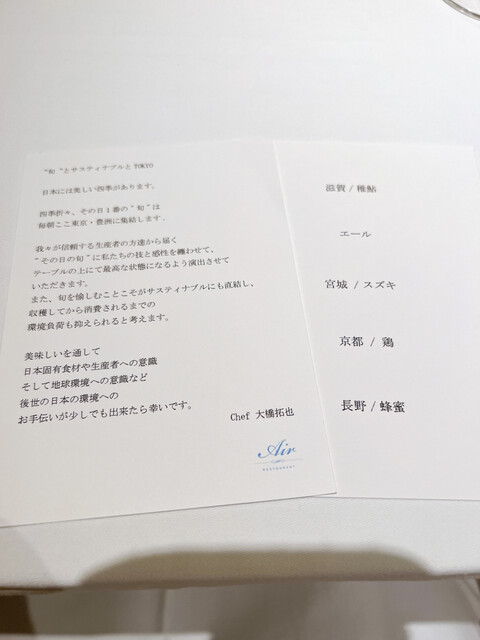 "旬"とサスティナブルと TOKYO
日本には美しい四季があります。
四季折々、その日1番の"旬"は
毎朝ここ東京・豊洲に集結します。
我々が信頼する生産者の方達から届く
"その日の旬"に私たちの技と感性を纏わせて、
テーブルの上にて最高な状態になるよう演出させて
いただきます。
また、旬を愉しむことこそがサスティナブルにも直結し、
収穫してから消費されるまでの
環境負荷も抑えられると考えます。
美味しいを通して
日本固有食材や生産者への意識
そして地球環境への意識など
後世の日本の環境への
お手伝いが少しでも出来たら幸いです。
Chef 大橋拓也
Air
RESTAURANT
滋賀 / 稚鮎
エール
宮城 / スズキ
京都 / 鶏
長野 / 蜂蜜